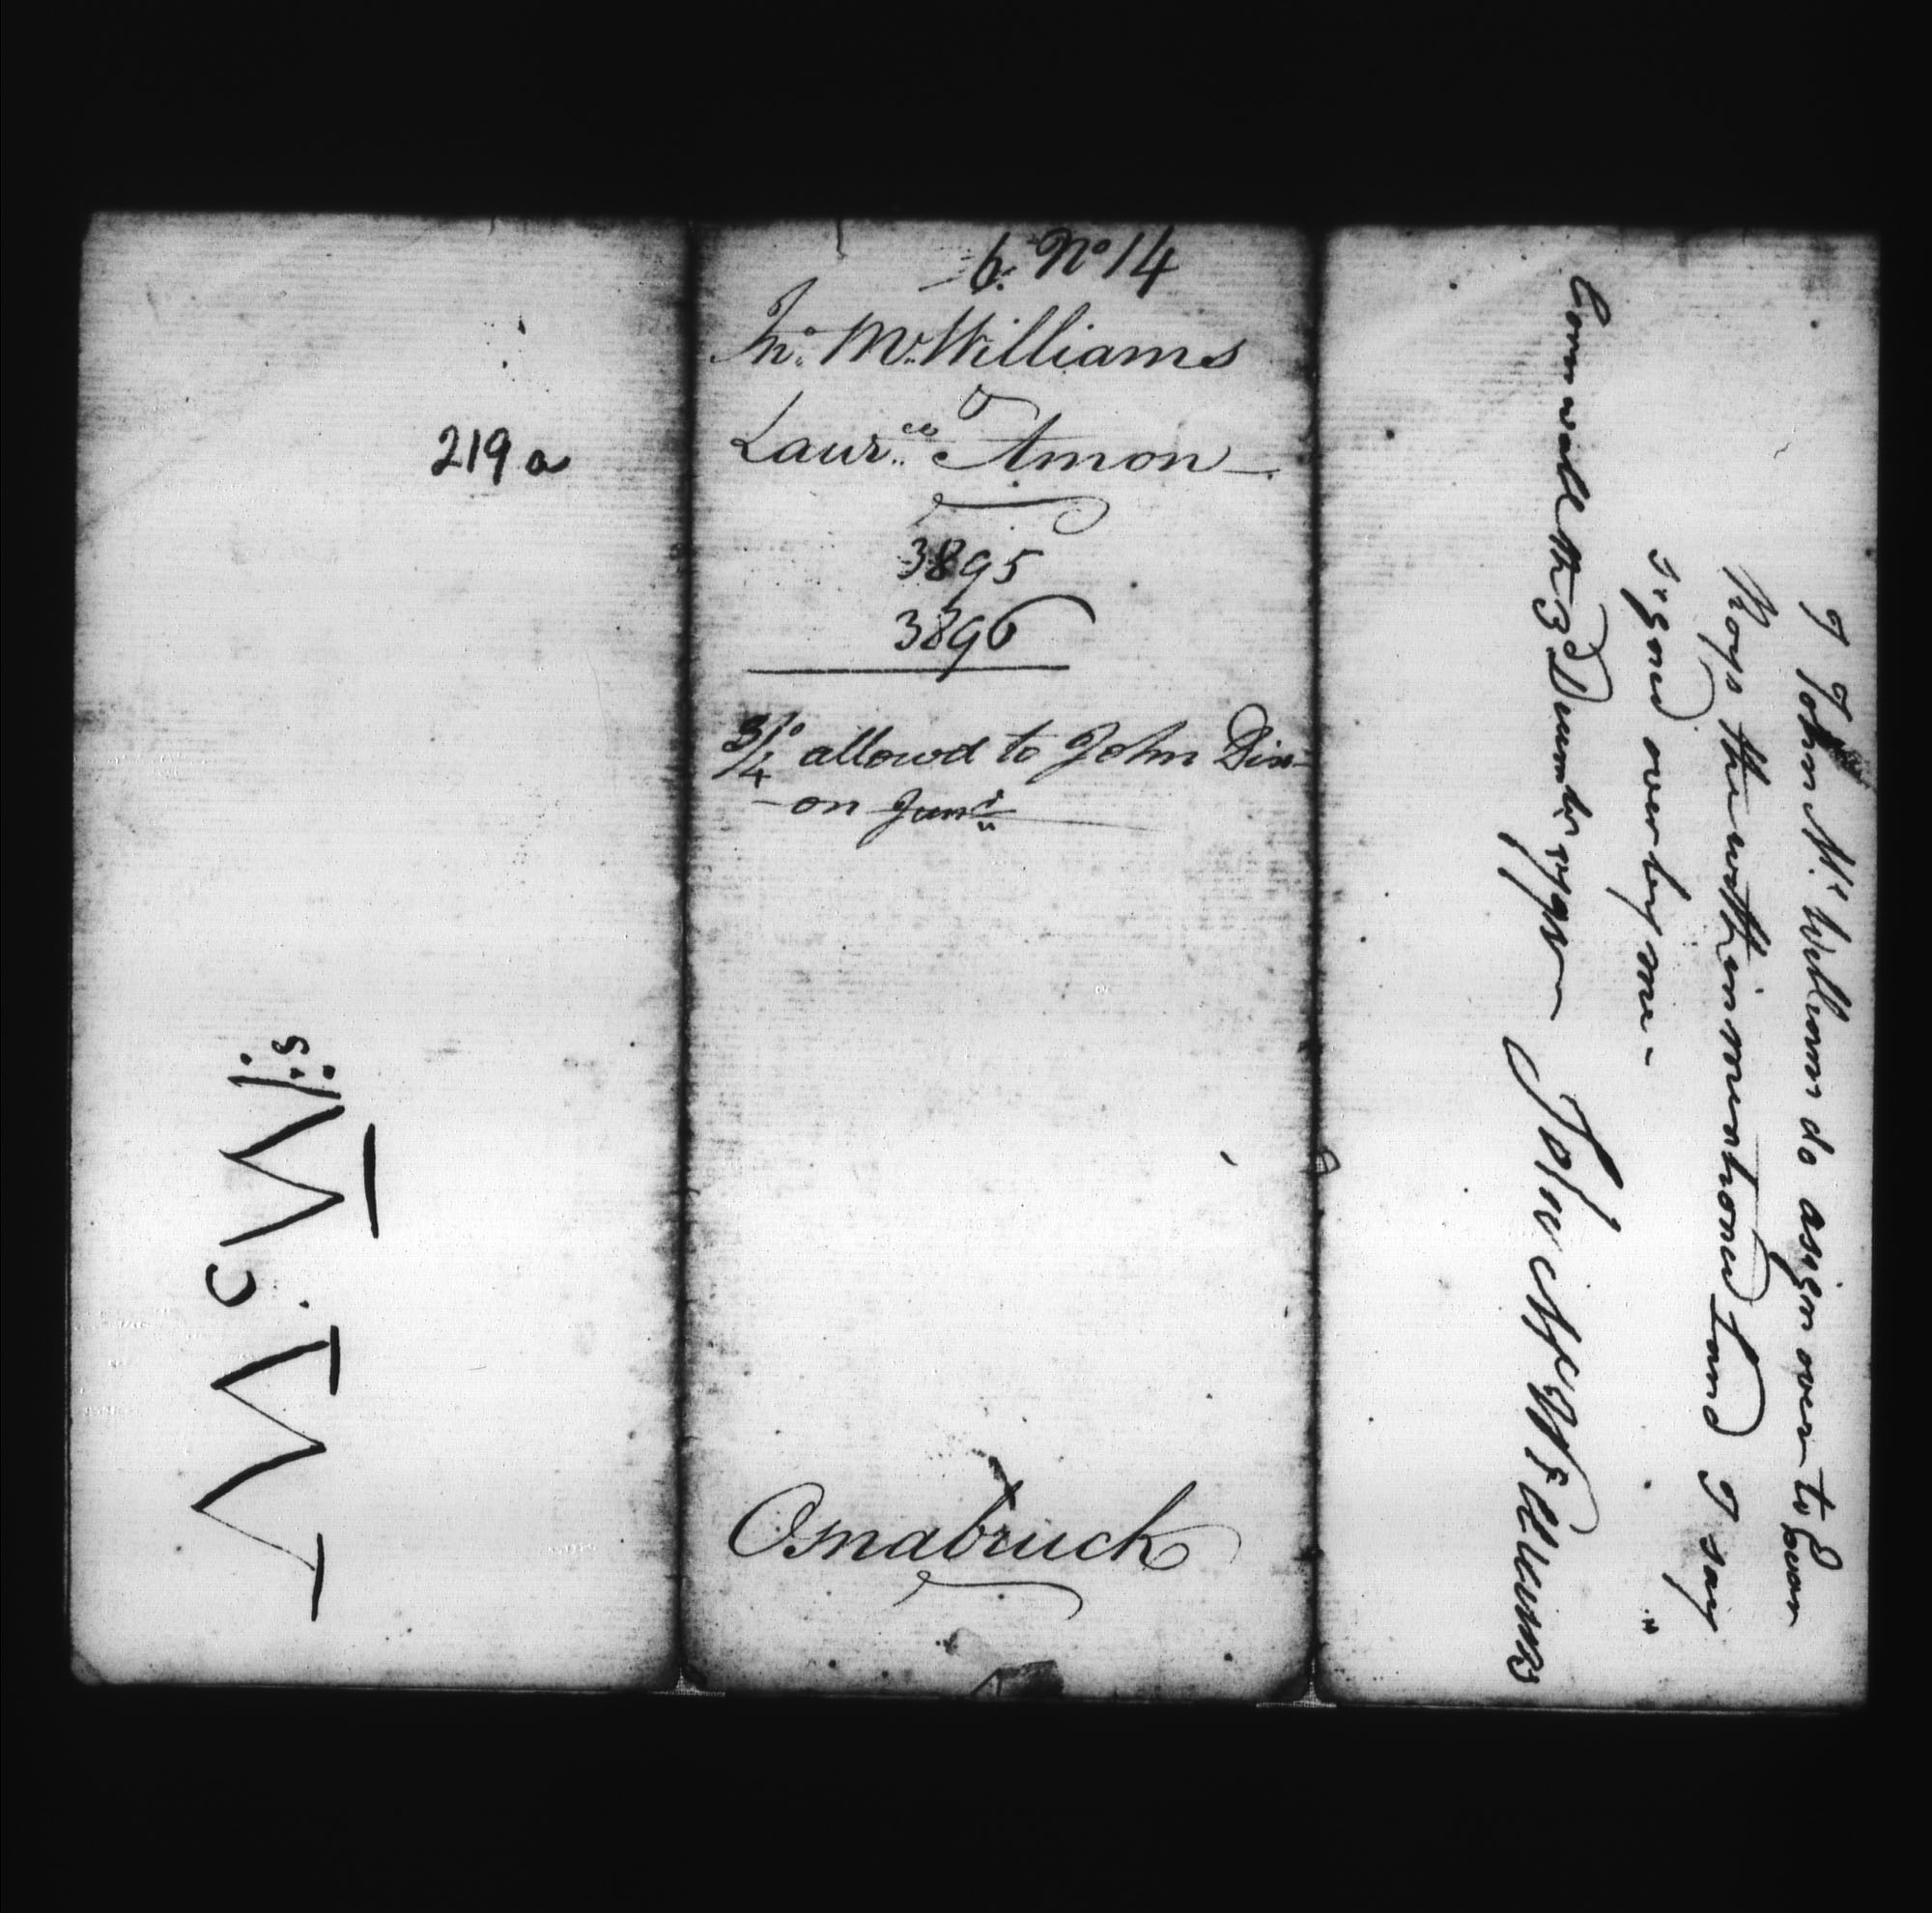 219 a
Mc. W
6. No 14
Jno. Mc.Williams
&
Laurce. Amon
3895
3896
3/4 allowd to John Dix-
-on Junr
Osnabruck
I John Mc Williams do assign over to Ewen
Roys the within mentioned Land I say
signd over by me -
Cornwall the 3d Decembr
John McWilliams